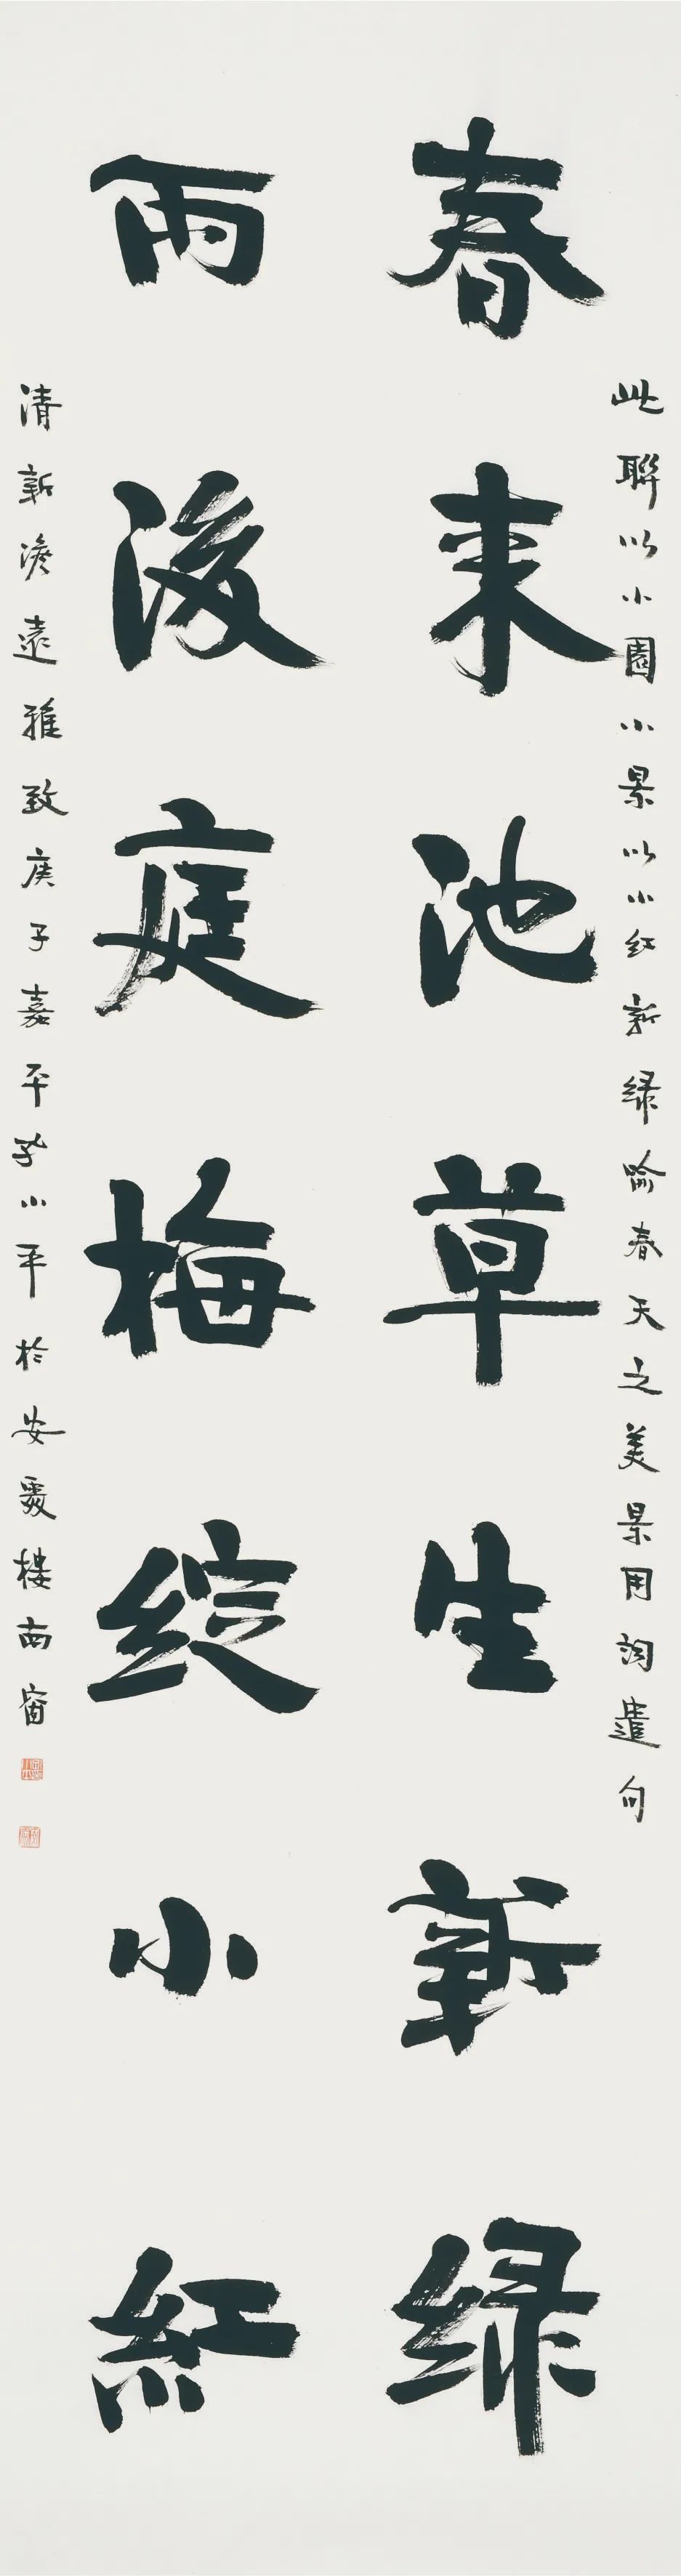 此聯以小園小景以小紅新绿喻春天之美景用詞遣句
春来池草生新绿
雨後庭梅綻小紅
清新澹遠雅致庚子嘉平小平於安樓南窗